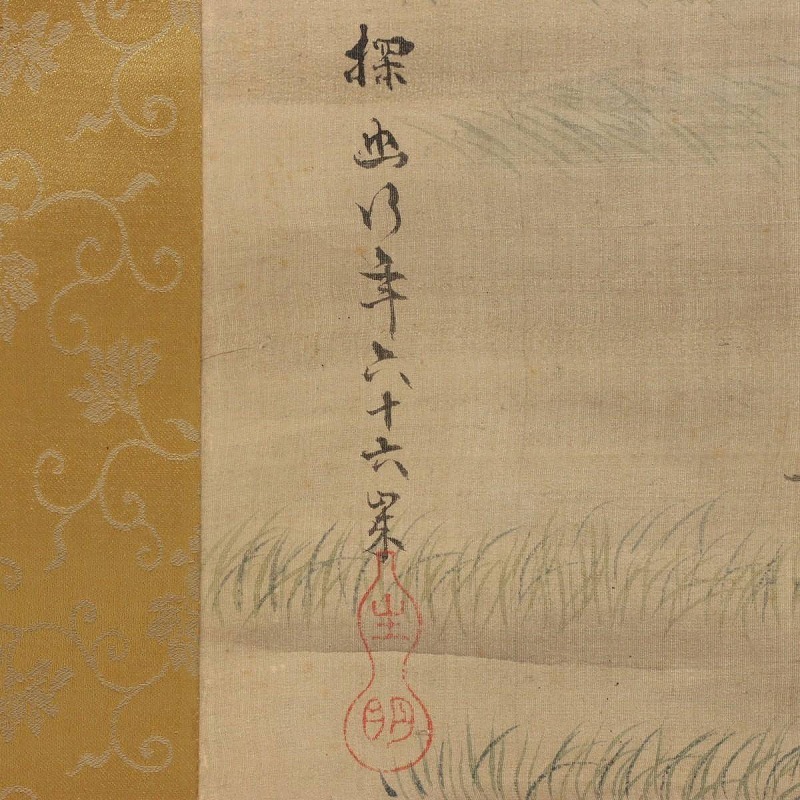 探幽行年六十六歳筆
生明